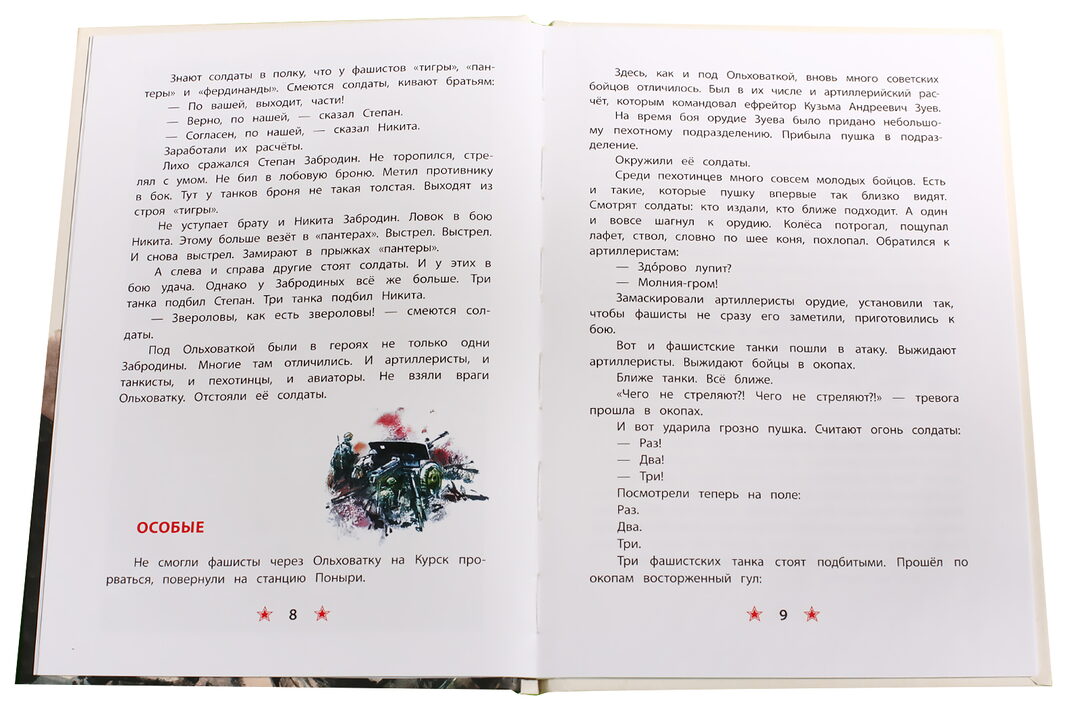 Знают солдаты в полку, что у фашистов «тигры», «пан-
теры» и «фердинанды». Смеются солдаты, кивают братьям:
— По вашей, выходит, части!
— Верно, по нашей, — сказал Степан.
— Согласен, по нашей, — сказал Никита.
Заработали их расчёты.
Лихо сражался Степан Забродин. Не торопился, стре-
лял с умом. Не бил в лобовую броню. Метил противнику
в бок. Тут у танков броня не такая толстая. Выходят из
строя «тигры».
Не уступает брату и Никита Забродин. Ловок в бою
Никита. Этому больше везёт в «пантерах». Выстрел. Выстрел.
И снова выстрел. Замирают в прыжках «пантеры».
А слева и справа другие стоят солдаты. И у этих в
бою удача. Однако у Забродиных всё же больше. Три
танка подбил Степан. Три танка подбил Никита.
— Звероловы, как есть звероловы! — смеются сол-
даты.
Под Ольховаткой были в героях не только одни
Забродины. Многие там отличились. И артиллеристы, и
танкисты, и пехотинцы, и авиаторы. Не взяли враги
Ольховатку. Отстояли её солдаты.
ОСОБЫЕ
Не смогли фашисты через Ольховатку на Курск про-
рваться, повернули на станцию Поныри.
8
Здесь, как и под Ольховаткой, вновь много советских
бойцов отличилось. Был в их числе и артиллерийский рас-
чёт, которым командовал ефрейтор Кузьма Андреевич Зуев.
На время боя орудие Зуева было придано небольшо-
му пехотному подразделению. Прибыла пушка в подраз-
деление.
Окружили её солдаты.
Среди пехотинцев много совсем молодых бойцов. Есть
и такие, которые пушку впервые так близко видят.
Смотрят солдаты: кто издали, кто ближе подходит. А один
и вовсе шагнул к орудию. Колёса потрогал, пощупал
лафет, ствол, словно по шее коня, похлопал. Обратился к
артиллеристам:
— Здо́рово лупит?
— Молния-гром!
Замаскировали артиллеристы орудие, установили так,
чтобы фашисты не сразу его заметили, приготовились к
бою.
Вот и фашистские танки пошли в атаку. Выжидают
артиллеристы. Выжидают бойцы в окопах.
Ближе танки. Всё ближе.
«Чего не стреляют?! Чего не стреляют?!» — тревога
прошла в окопах.
И вот ударила грозно пушка. Считают огонь солдаты:
— Раз!
— Два!
— Три!
Посмотрели теперь на поле:
Раз.
Два.
Три.
Три фашистских танка стоят подбитыми. Прошёл по
окопам восторженный гул:
9